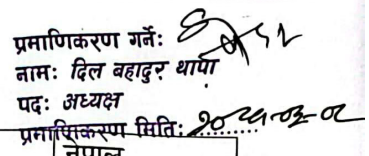 प्रमाणिकरण गर्ने:
नामः दिल बहादुर थापा
पदः अध्यक्ष
प्रमाणिकरण मिति:
नेपाल